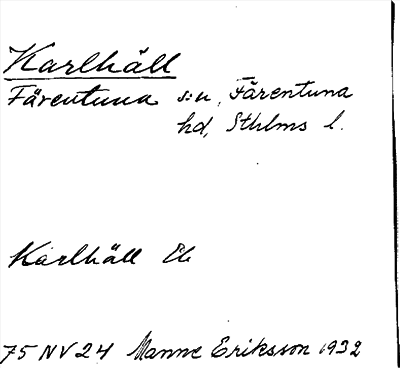 Karlhäll
Färentuna s:n, Färentuna
hd, Sthlms l.
Karlhäll Eb
75 NV 24 Manne Eriksson 1932